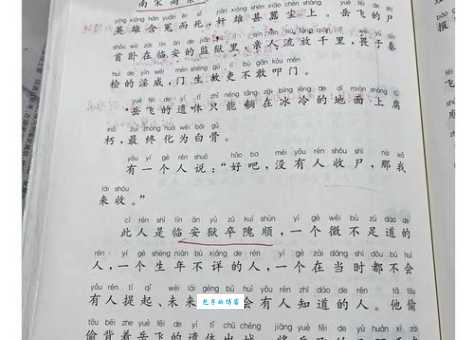 南宋
yīng xióng hán yuān ér sǐ jiān xióng xiàn áo chén shàng yuè fēi de shī
英雄含冤而死，奸雄县嚣尘上。岳飞的尸
首卧在临安的监狱里，亲人流放千里，畏于秦
huì de yín wēi mén shēng gù lì bù gǎn kòu mén
桧的淫威，门生故吏不敢叩门。
yuè fēi de yí tǐ zhǐ néng tǎng zài bīng lěng de dì miàn shàng fǔ
岳飞的遗体只能躺在冰冷的地面上腐
xiǔ zuì zhōng huà wéi bái gǔ
朽，最终化为白骨。
yǒu yī gè rén shuō hǎo ba méi yǒu rén shōu shī nà wǒ
有一个人说：“好吧，没有人收尸，那我
lái shōu
来收。”
cǐ rén shì lín ān yù zú kuí shùn yí gè wēi bù zú dào de
此人是临安狱卒隗顺，一个微不足道的
rén yí gè shēng nián bù xiáng de rén yí gè zài dāng shí dōu bú huì
人，一个生年不详的人，一个在当时都不会
yǒu rén tí qǐ wèi lái gèng bú huì yǒu rén zhī dào de rén tā tōu
有人提起、未来 会有人知道的人。他偷
tōu bēi zhe yuè fēi de yí tǐ chū chéng jiāng yuè fēi de yù huán xì zài
偷背着岳飞的遗体出城，将岳飞的玉
报